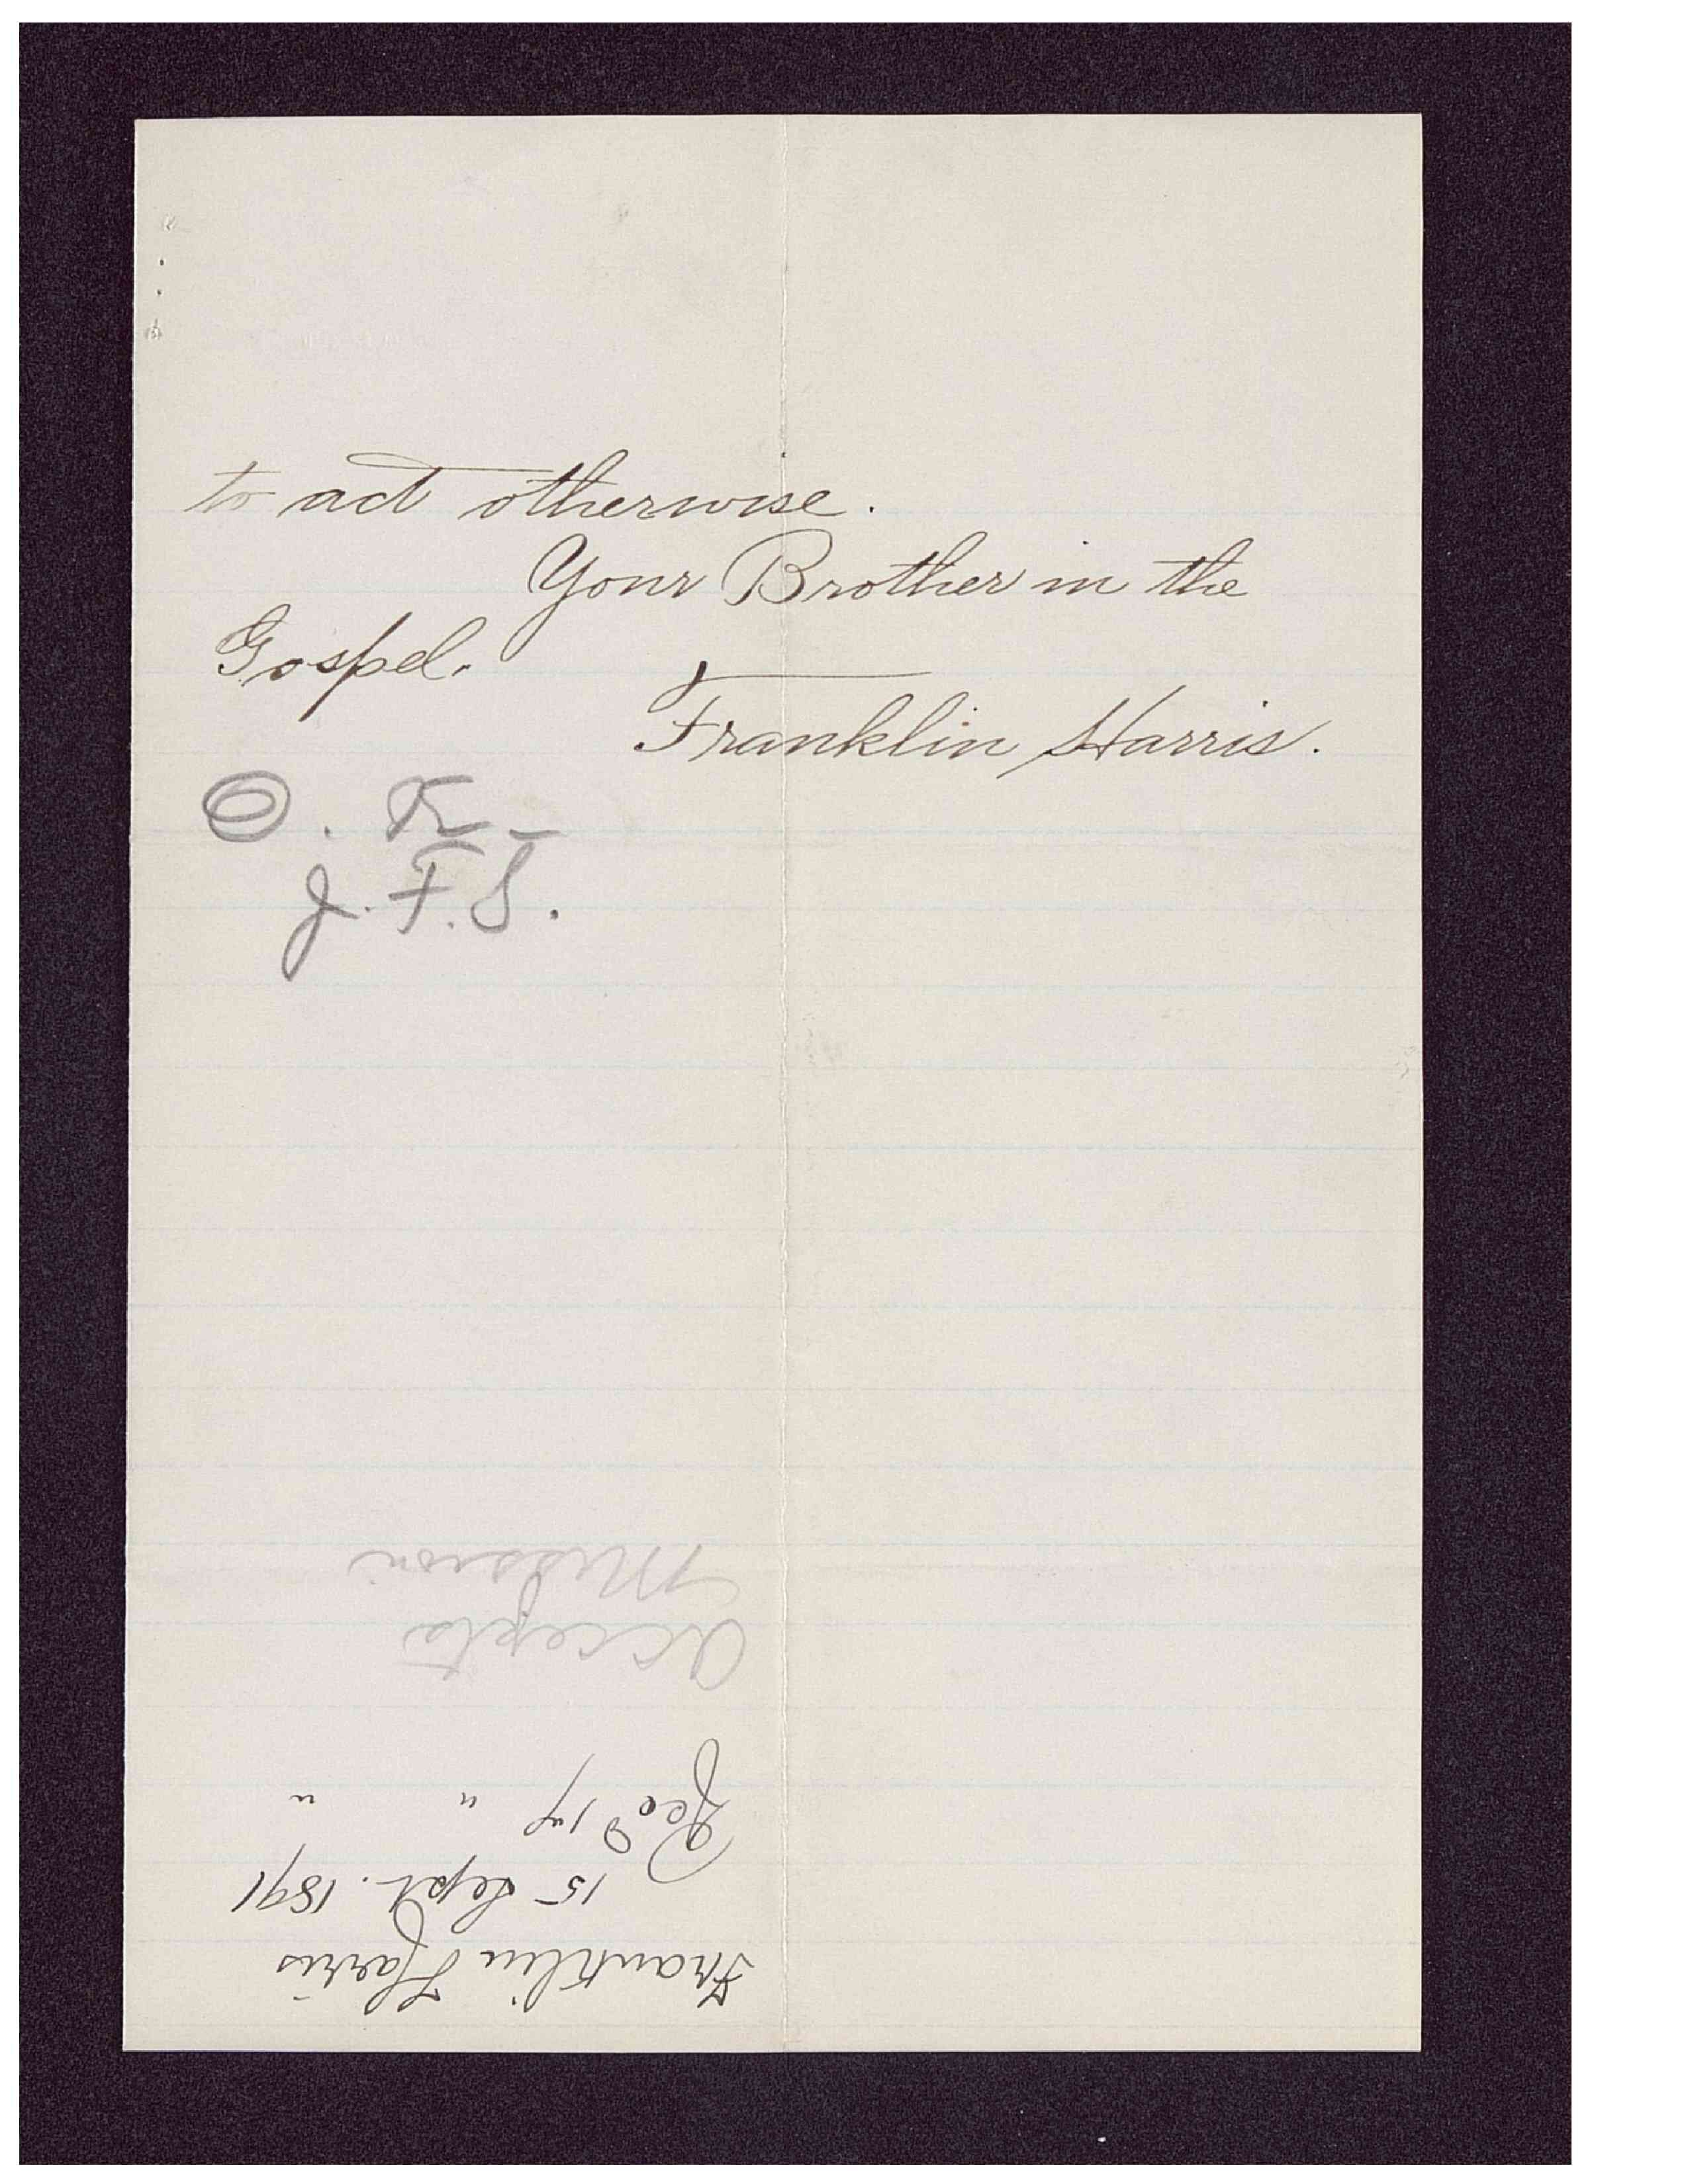 to act otherwise.
Your Brother in the
Gospel.
Franklin Harris.
O. K.
J. F. S.
Franklin Harris
15 Sept. 1891
Recd 17 " "
Accepts
Mission